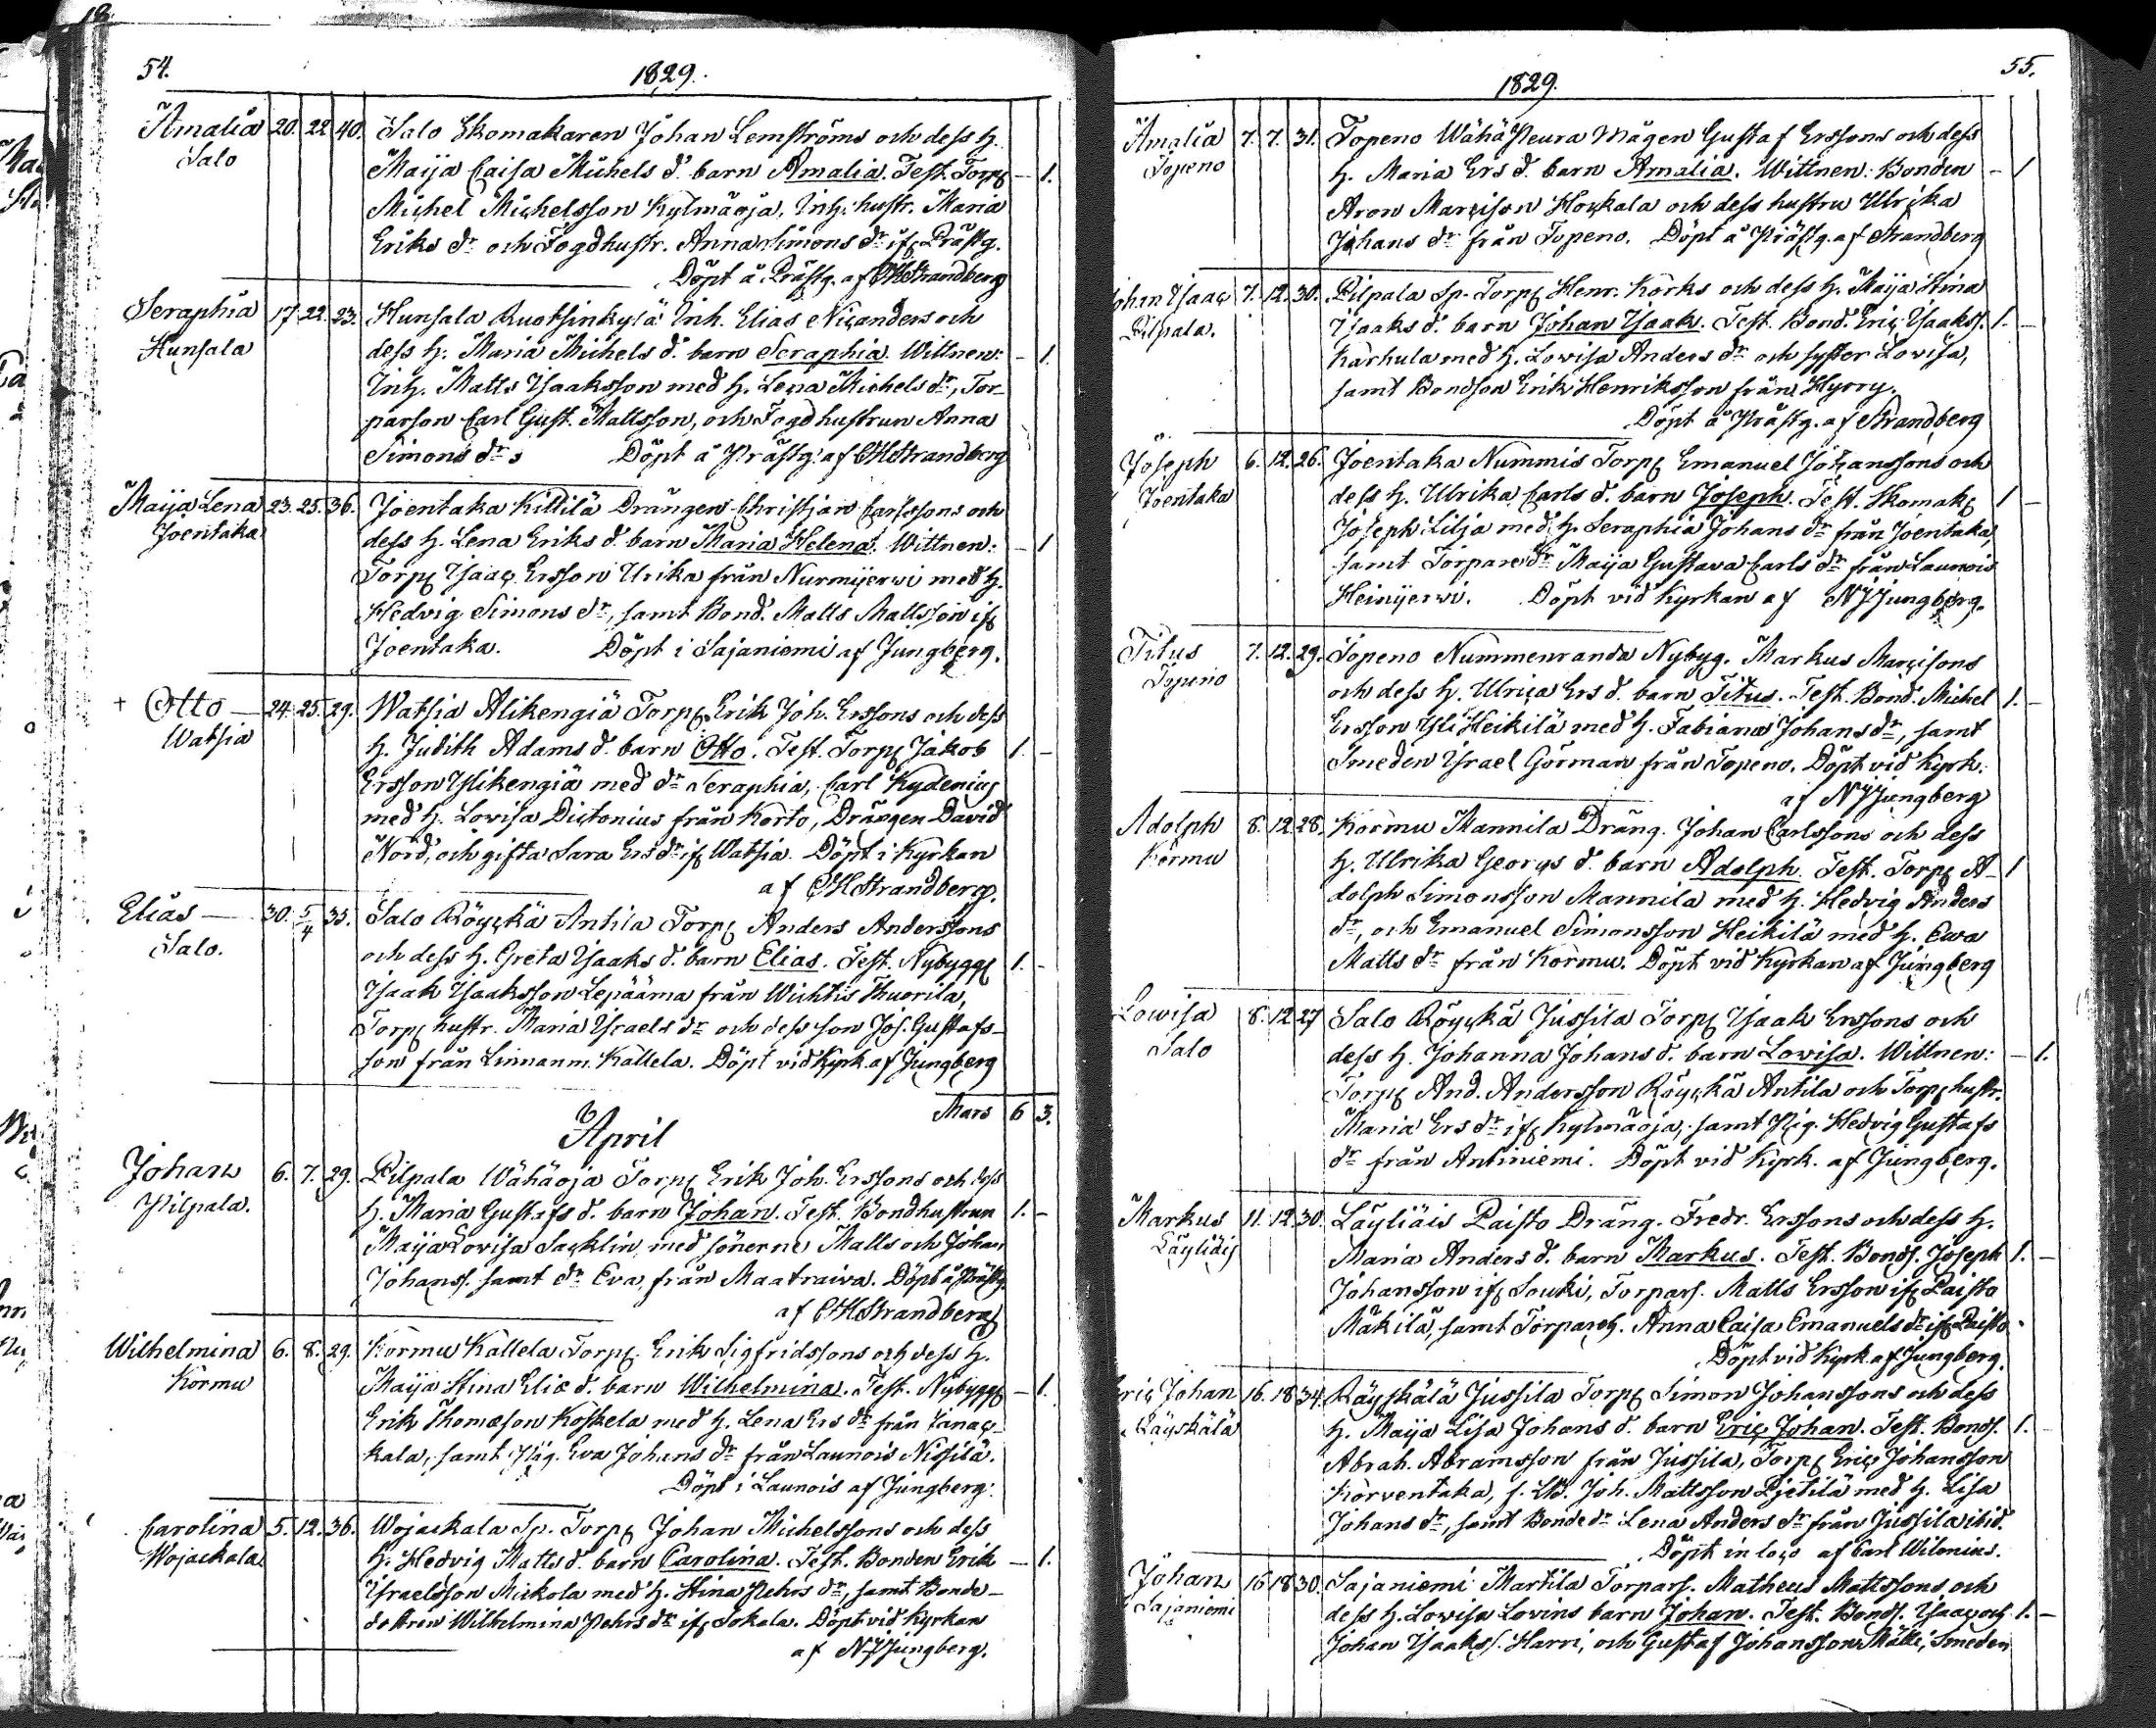 54.
1829.
Amalia 20. 22 40. Salo Skomakaren Johan Lemströms och dess h.
Salo Maija Caisa Michels d. barn Amalia. Test. Torp. – 1.
Michel Michelsson Kylmäoja, Inh: hustr. Maria
Eriks dr och Fogdhustr. Anna Simons dr if. Prästg.
Döpt å Prästg. af CHStrandberg
Seraphia 17. 22. 23. Hunsala Ruotsinkylä Inh. Elias Nicanders och
Hunsala dess h. Maria Michels d. barn Seraphia. Wittnen: – 1.
Inh. Matts Isaaksson med h. Lena Michels dr, Tor-
parson Carl Gust. Mattsson, och Fogdhustrun Anna
Simons dr. Döpt å Prästg. af CHStrandberg
Maija Lena 23. 25. 36. Joentaka Kittilä Drängen Christian Carlssons och
Joentaka dess h. Lena Eriks d. barn Maria Helena. Wittnen: – 1
Torp. Isaac Ersson Urika från Nurmijerwi med h.
Hedvig Simons dr, samt Bond. Matts Mattsson if.
Joentaka. Döpt i Sajaniemi af Jungberg.
+ Otto – 24. 25. 29. Watsia Alikengiä Torp. Erik Joh. Erssons och dess
Watsia h. Judith Adams d. barn Otto. Test. Torp. Jakob 1. –
Ersson Ylikengiä med dr Seraphia, Carl Kydenius
med h. Lovisa Dictonius från Korto, Drängen David
Nord, och gifta Sara Ers dr if. Watsia. Döpt i Kyrkan
af CHStrandberg.
Elias – 30. 5/4 35. Salo Röyckä Anhila Torp. Anders Anderssons
Salo. och dess h. Greta Isaaks d. barn Elias. Test. Nybygg. 1. –
Isaak Isaaksson Lepääma från Wichtis Huorila,
Torp. hustr. Maria Israels dr och dess son Jos. Gustafs-
son från Linnanm. Källela. Döpt vid Kyrk. af Jungberg
Mars 6 3.
April
Johan 6. 7. 29. Pilpala Wähäoja Torp. Erik Joh. Erssons och dess
Pilpala. h. Maria Gustafs d. barn Johan. Test. Bondhustrun 1. –
Maija Lovisa Sacklin med sönerne Matts och Johan
Johanss. samt dr Eva, från Maatraiva. Döpt å Prästg.
af CHStrandberg
Wilhelmina 6. 8. 29. Kormu Kallela Torp. Erik Sigfridssons och dess h.
Kormu Maija Stina Eliæ d. barn Wilhelmina. Test. Nybygg. – 1.
Erik Thomæson Koskela med h. Lena Ers dr från Janac-
kala, samt Pig. Eva Johans dr från Launois Nissilä.
Döpt i Launois af Jungberg.
Carolina 5. 12. 36. Wojackala Sp. Torp. Johan Michelssons och dess
Wojackala h. Hedvig Matts d. barn Carolina. Test. Bonden Erik – 1.
Israelsson Mickola med h. Stina Pehrs dr, samt Bonde-
dottren Wilhelmina Pehrs dr if. Sokala. Döpt vid Kyrkan
af NJJungberg.
55.
1829.
Amalia 7. 7. 31. Topeno Wähä Seura Mågen Gustaf Erssons och dess
Topeno h. Maria Ers d. barn Amalia. Wittnen: Bonden – 1
Aron Marcisson Hockala och dess hustru Ulrika
Johans dr från Topeno. Döpt å Prästg. af Strandberg
Johan Isaac 7. 12. 30. Pilpala Sp. Torp. Henr. Körks och dess h. Maija Stina
Pilpala. Isaaks d. barn Johan Isaak. Test. Bond. Eric Isaakss. 1. –
Karhula med h. Lovisa Anders dr och syster Lovisa,
samt Bondson Erik Henriksson från Hyrry.
Döpt å Prästg. af Strandberg
Joseph 6. 12. 26. Joentaka Nummis Torp. Emanuel Johanssons och
Joentaka dess h. Ulrika Carls d. barn Joseph. Test. Skomak. 1 –
Joseph Lilja med h. Seraphia Johans dr från Joentaka,
samt Torparedr Maija Gustava Carls dr från Launois
Heinijerwi. Döpt vid Kyrkan af NJJungberg.
Titus 7. 12. 29. Topeno Nummenranda Nybyg. Markus Marcisons
Topeno och dess h. Ulrica Ers d. barn Titus. Test. Bond. Michel 1. –
Ersson Yli Heikilä med h. Fabiana Johans dr, samt
Smeden Israel Görman från Topeno. Döpt vid Kyrk.
af NJJungberg
Adolph 8. 12. 28. Kormu Mannila Dräng. Johan Carlssons och dess
Kormu h. Ulrika Georgs d. barn Adolph. Test. Torp. A- 1
dolph Simonsson Mannila med h. Hedvig Anders
dr, och Emanuel Simonsson Heikilä med h. Ewa
Matts dr från Kormu. Döpt vid Kyrkan af Jungberg
Lowisa 8. 12 27 Salo Röyckä Jussila Torp. Isaak Erssons och
Salo dess h. Johanna Johans d. barn Lovisa. Wittnen: – 1.
Torp. And. Andersson Röyckä Antila och Torp. hustr.
Maria Ers dr if. Kylmäoja, samt Pig. Hedvig Gustafs
dr från Antiniemi. Döpt vid Kyrk. af Jungberg.
Markus 11. 12. 30. Läyliäis Paisto Dräng. Fredr. Erssons och dess h.
Läyliäis Maria Anders d. barn Markus. Test. Bonds. Joseph 1. –
Johansson if. Souki, Torpars. Matts Ersson if. Paisto
Mäkilä, samt Torpareh. Anna Caisa Emanuels dr if. Paisto.
Döpt vid Kyrk. af Jungberg.
Eric Johan 16. 18 34. Räyskälä Jussila Torp. Simon Johanssons och dess
Räyskälä h. Maija Lisa Johans d. barn Eric Johan. Test. Bonds. 1. –
Abrah. Abramsson från Jussila, Torp. Eric Johansson
Körventaka, Joh. Mattsson Pjetilä med h. Lisa
Johans dr, samt Bonde dr Lena Anders dr från Jussila ibid.
Döpt in loco af Carl Wilenius.
Johan 16 18 30. Sajaniemi Martila Torpars. Matheus Mattssons och
Sajaniemi dess h. Lovisa Lovins barn Johan. Test. Bonds. Isaac och 1. –
Johan Isaakss. Harri, och Gustaf Johansson Mälli, Smeden